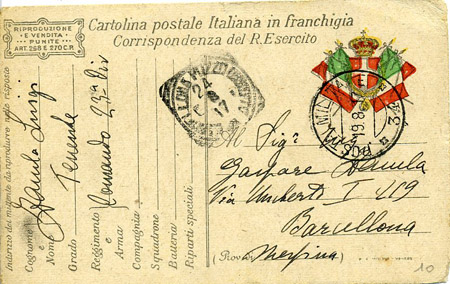 RIPRODUZIONE
E VENDITA
PUNITE
ART. 268 E 270 C.P.
Cartolina postale Italiana in franchigia
Corrispondenza del R. Esercito
Indirizzo del mittente da riprodurre nelle risposte
Cognome
Nome Luigi
Grado Tenente
Reggimento Comando 23ª Div
e
Arma
Compagnia
Squadrone
Batteria
Riparti speciali
24
17
POSTA MILITARE
34
Sigr
Gaspare
Via Umberto I 219
Barcellona
(Prov. Messina
10